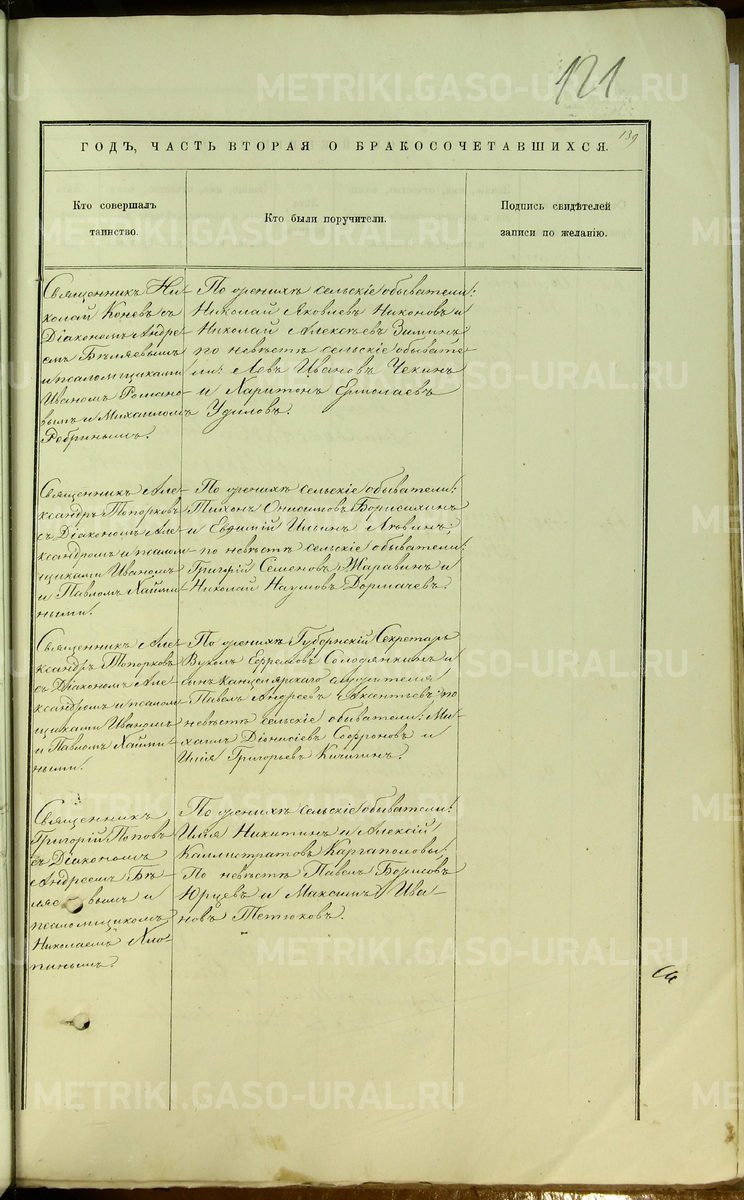 121
139
ГОДЪ, ЧАСТЬ ВТОРАЯ О БРАКОСОЧЕТАВШИХСЯ.
Кто совершалъ
таинство.
Кто были поручители.
Подпись свидѣтелей
записи по желанію.
Священникъ Ни-
колай Коневъ съ
Діакономъ Андре-
емъ Бѣляевымъ
и псаломщиками
Иваномъ Романо-
вымъ и Михаиломъ
Ребринымъ.
По женихѣ сельскіе обыватели:
Николай Яковлевъ Никоновъ и
Николай Алексѣевъ Зиминъ
по невѣстѣ сельскіе обывате-
ли: Левъ Ивановъ Чекинъ
и Харитонъ Ермолаевъ
Удиловъ.
Священникъ Але-
ксандръ Топорковъ
съ Діакономъ Але-
ксандромъ и псалом-
щиками Иваномъ
и Павломъ Хайми-
ными.
По женихѣ сельскіе обыватели:
Тихонъ Онисимовъ Борисихинъ
и Евфимій Ильинъ Лѣвинъ,
по невѣстѣ сельскіе обыватели:
Григорій Семеновъ Жаравинъ и
Николай Наумовъ Дормачевъ.
Священникъ Але-
ксандръ Топорковъ
съ Діакономъ Але-
ксандромъ и псалом-
щиками Иваномъ
и Павломъ Хайми-
ными.
По женихѣ Губернскій Секретарь
Вуколъ Ефремовъ Солодянкинъ и
сынъ канцелярскаго служителя
Павелъ Андреевъ Аксентьевъ: по
невѣстѣ сельскіе обыватели: Ми-
хаилъ Діонисіевъ Софроновъ и
Илія Григорьевъ Кичигинъ.
Священникъ
Григорій Поповъ
съ Діакономъ
Андреемъ Бѣ-
ляевымъ и
псаломщикомъ
Николаемъ Хло-
пинымъ.
По женихѣ сельскіе обыватели:
Илія Никитинъ и Алексій
Каллистратовъ Каргаполовы:
По невѣстѣ Павелъ Борисовъ
Юрцевъ и Максимъ Ива-
новъ Тетюковъ.
METRIKI.GASO-URAL.RU